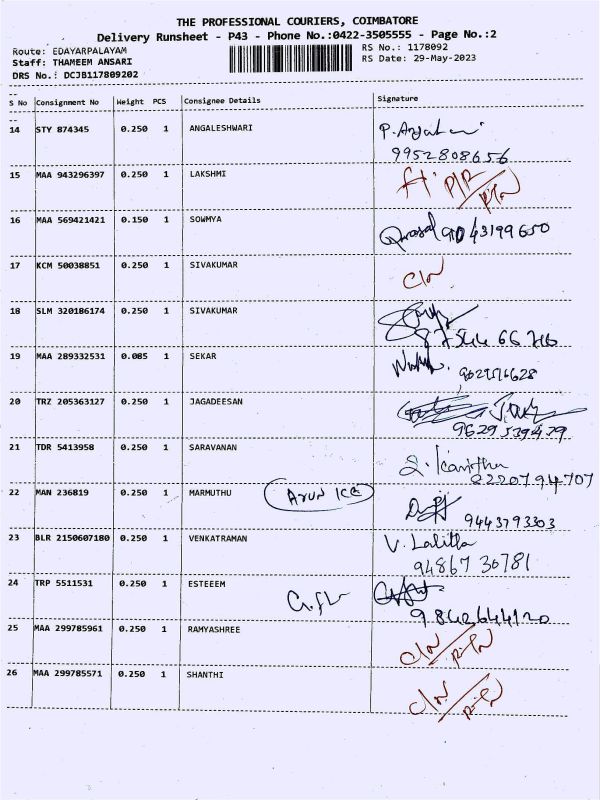 THE PROFESSIONAL COURIERS, COIMBATORE
Delivery Runsheet - P43 - Phone No.:0422-3505555 - Page No.:2
Route: EDAYARPALAYAM RS No.: 1178092
Staff: THAMEEM ANSARI RS Date: 29-May-2023
DRS No.: DCJB117809202
S No Consignment No Weight PCS Consignee Details Signature
14 STY 874345 0.250 1 ANGALESHWARI
9952808656
15 MAA 943296397 0.250 1 LAKSHMI
16 MAA 569421421 0.150 1 SOWMYA
17 KCM 50038851 0.250 1 SIVAKUMAR
18 SLM 320186174 0.250 1 SIVAKUMAR
19 MAA 289332531 0.085 1 SEKAR
20 TRZ 205363127 0.250 1 JAGADEESAN
9629539439
21 TDR 5413958 0.250 1 SARAVANAN
8220794707
22 MAN 236819 0.250 1 MARMUTHU Arun ICE
9443793303
23 BLR 2150607180 0.250 1 VENKATRAMAN V. Lalitha
94867 30781
24 TRP 5511531 0.250 1 ESTEEEM
9842644120
25 MAA 299785961 0.250 1 RAMYASHREE
26 MAA 299785571 0.250 1 SHANTHI